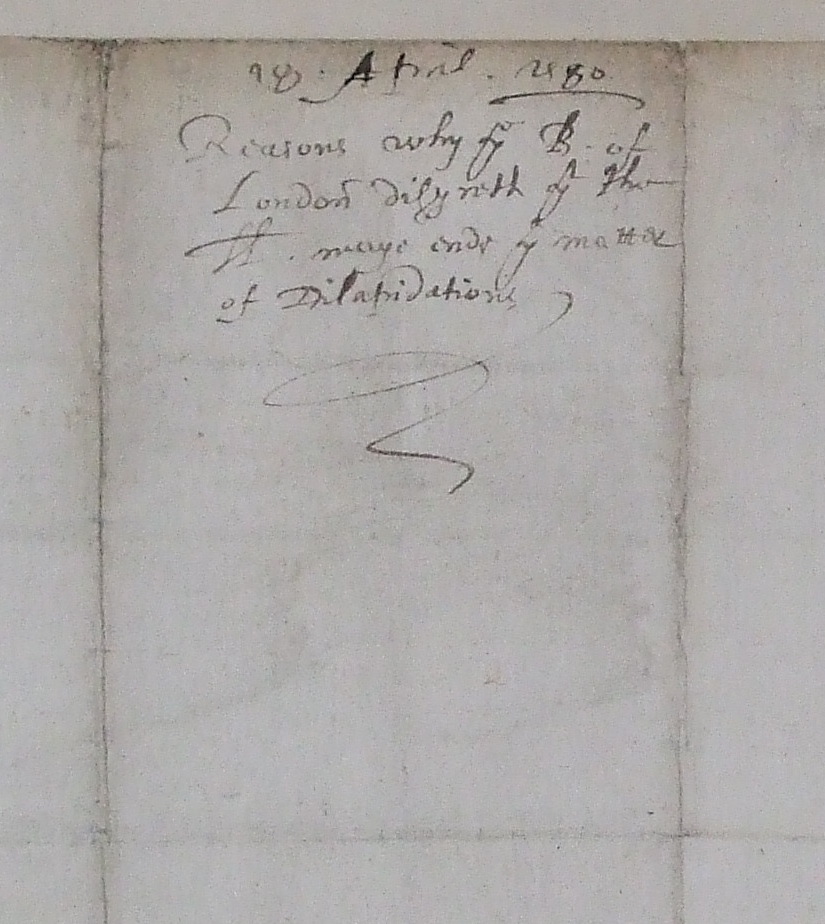 18. April. 1580
Reasons why ye B. of
London desyreth yt the
ll. maye ende ye matter
of Dilapidations